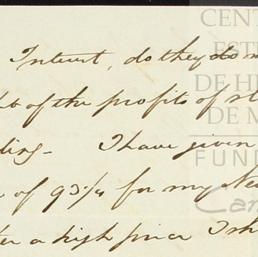 Interest, do they do n
of the profits of st
ling - I have given
of 93¼ for my Ne
a high price I sh
CENT
EST
DE H
DE M
FUND
Car